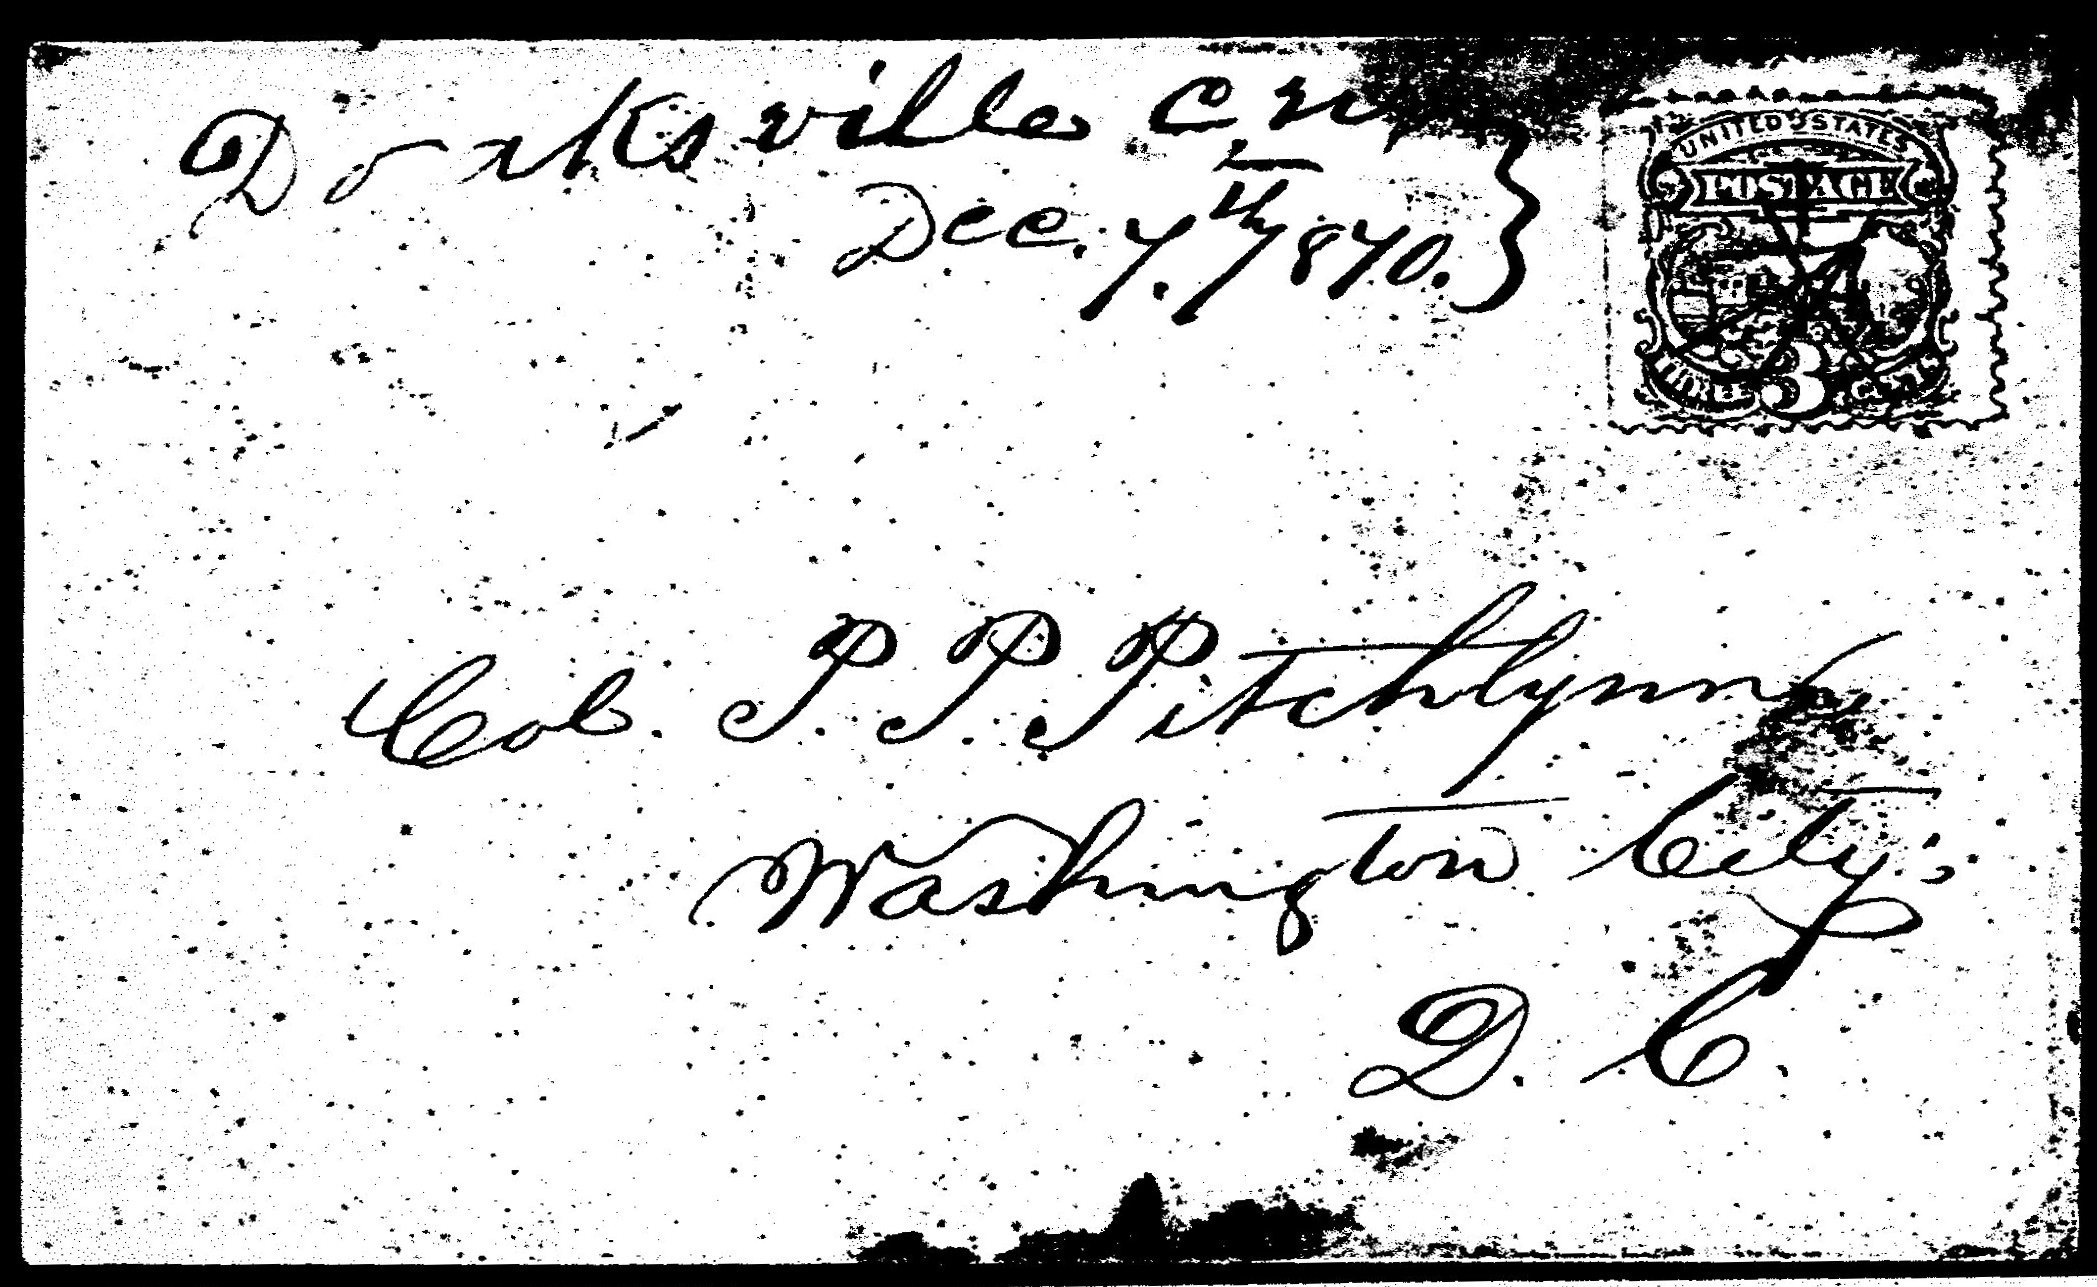 Doaksville C.N.
Dec. 7.th 1870.
UNITED STATES
POSTAGE
THREE 3 CENTS
Col. P. P. Pitchlynn,
Washington City;
D. C.